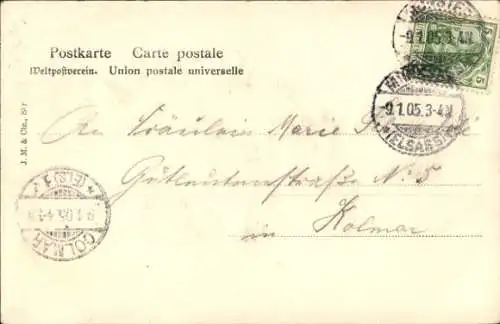 Postkarte Carte postale
Weltpostverein. Union postale universelle
-9.1.05.3-4N
5
-9.1.05.3-4N
(ELSASS)
J. M. & Cie.,
An Fräulein Marie
Gutleutenstraße N. 5
in Kolmar
(ELS)
9.1.05.4-5N
COLMAR